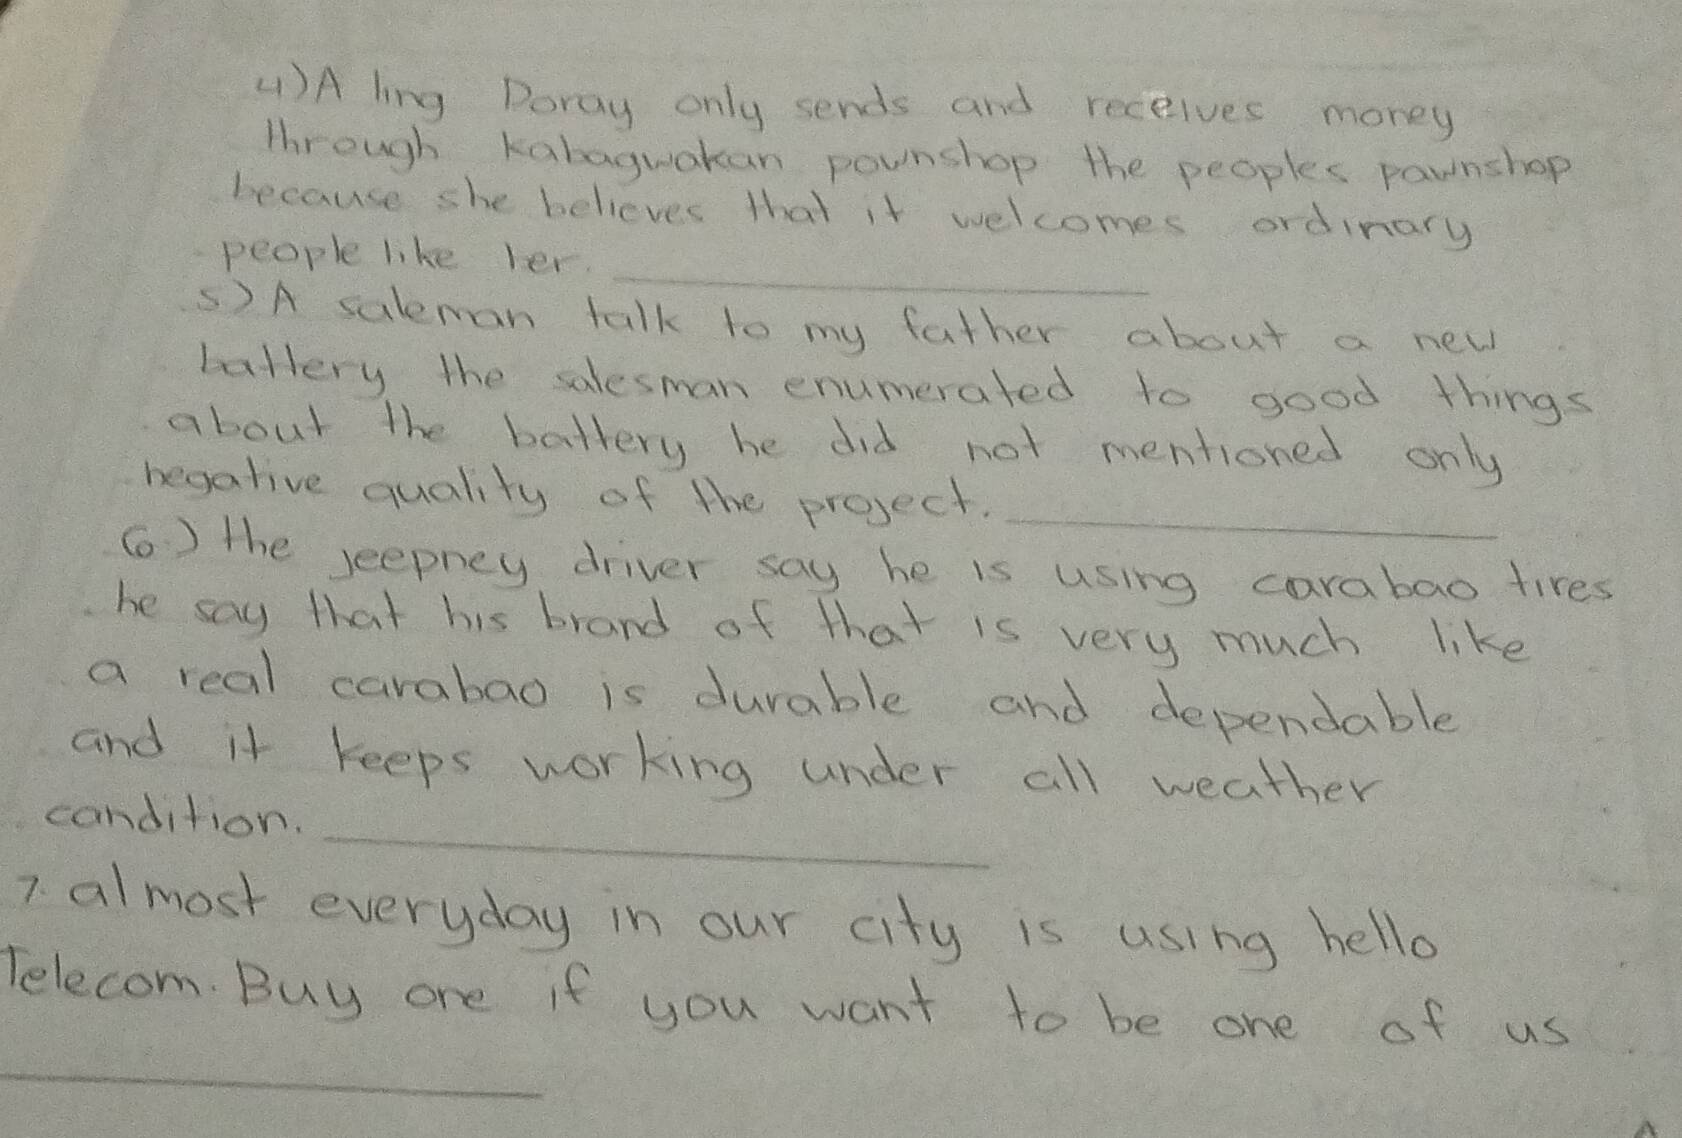 4) A ling Doray only sends and receives money
through Kabagwakan pownshop the peoples pawnshop
because she believes that it welcomes ordinary
people like her.
5) A saleman talk to my father about a new
battery the salesman enumerated to good things
about the battery he did not mentioned only
negative quality of the project.
6.) the jeepney driver say he is using carabao tires
he say that his brand of that is very much like
a real carabao is durable and dependable
and it keeps working under all weather
condition.
7. almost everyday in our city is using hello
Telecom. Buy one if you want to be one of us.